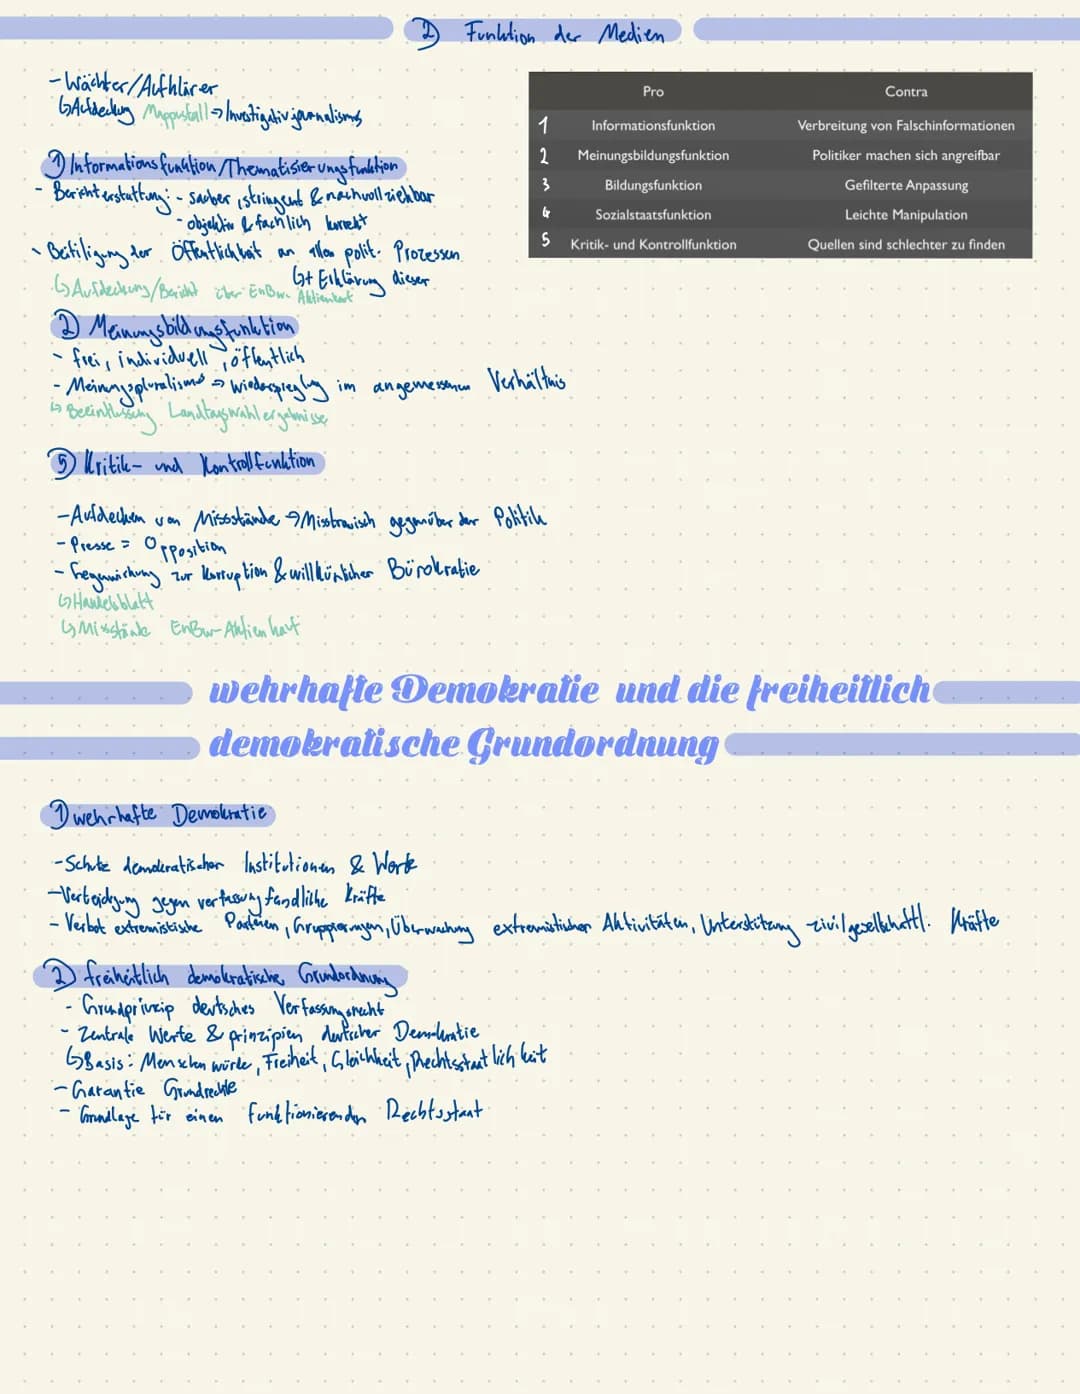 2) Funktion der Medien
- Wächter/Aufklärer
↳ Aufdeckung Mappusfall → Investigativjournalismus
Pro Contra
1 Informationsfunktion Verbreitung von Falschinformationen
2 Meinungsbildungsfunktion Politiker machen sich angreifbar
3 Bildungsfunktion Gefilterte Anpassung
4 Sozialstaatsfunktion Leichte Manipulation
5 Kritik- und Kontrollfunktion Quellen sind schlechter zu finden
1) Informationsfunktion/Thematisierungsfunktion
- Berichterstattung: - sauber, stringent & nachvollziehbar
- objektiv & fachlich korrekt
- Beteiligung der Öffentlichkeit an allen polit. Prozessen
↳ + Erklärung dieser
↳ Aufdeckung/Bericht über EnBw- Aktienkauf
2) Meinungsbildungsfunktion
- frei, individuell, öffentlich
- Meinungspluralismus → Wiederspieglung im angemessenen Verhältnis
↳ Beeinflussung Landtagswahlergebnisse
5) Kritik- und Kontrollfunktion
- Aufdecken von Missstände → Misstrauisch gegenüber der Politik
- Presse = Opposition
- Gegenwirkung zur Korruption & willkürlicher Bürokratie
↳ Handelsblatt
↳ Missstände EnBw-Aktienkauf
wehrhafte Demokratie und die freiheitlich
demokratische Grundordnung
1) wehrhafte Demokratie
- Schutz demokratischer Institutionen & Werte
- Verteidigung gegen verfassungsfeindliche Kräfte
- Verbot extremistische Parteien, Gruppierungen, Überwachung extremistischer Aktivitäten, Unterstützung zivilgesellschaftl. Kräfte
2) freiheitlich demokratische Grundordnung
- Grundprinzip deutsches Verfassungsrecht
- Zentrale Werte & prinzipien deutscher Demokratie
↳ Basis: Menschenwürde, Freiheit, Gleichheit, Rechtsstaatlichkeit
- Garantie Grundrechte
- Grundlage für einen funktionierenden Rechtsstaat